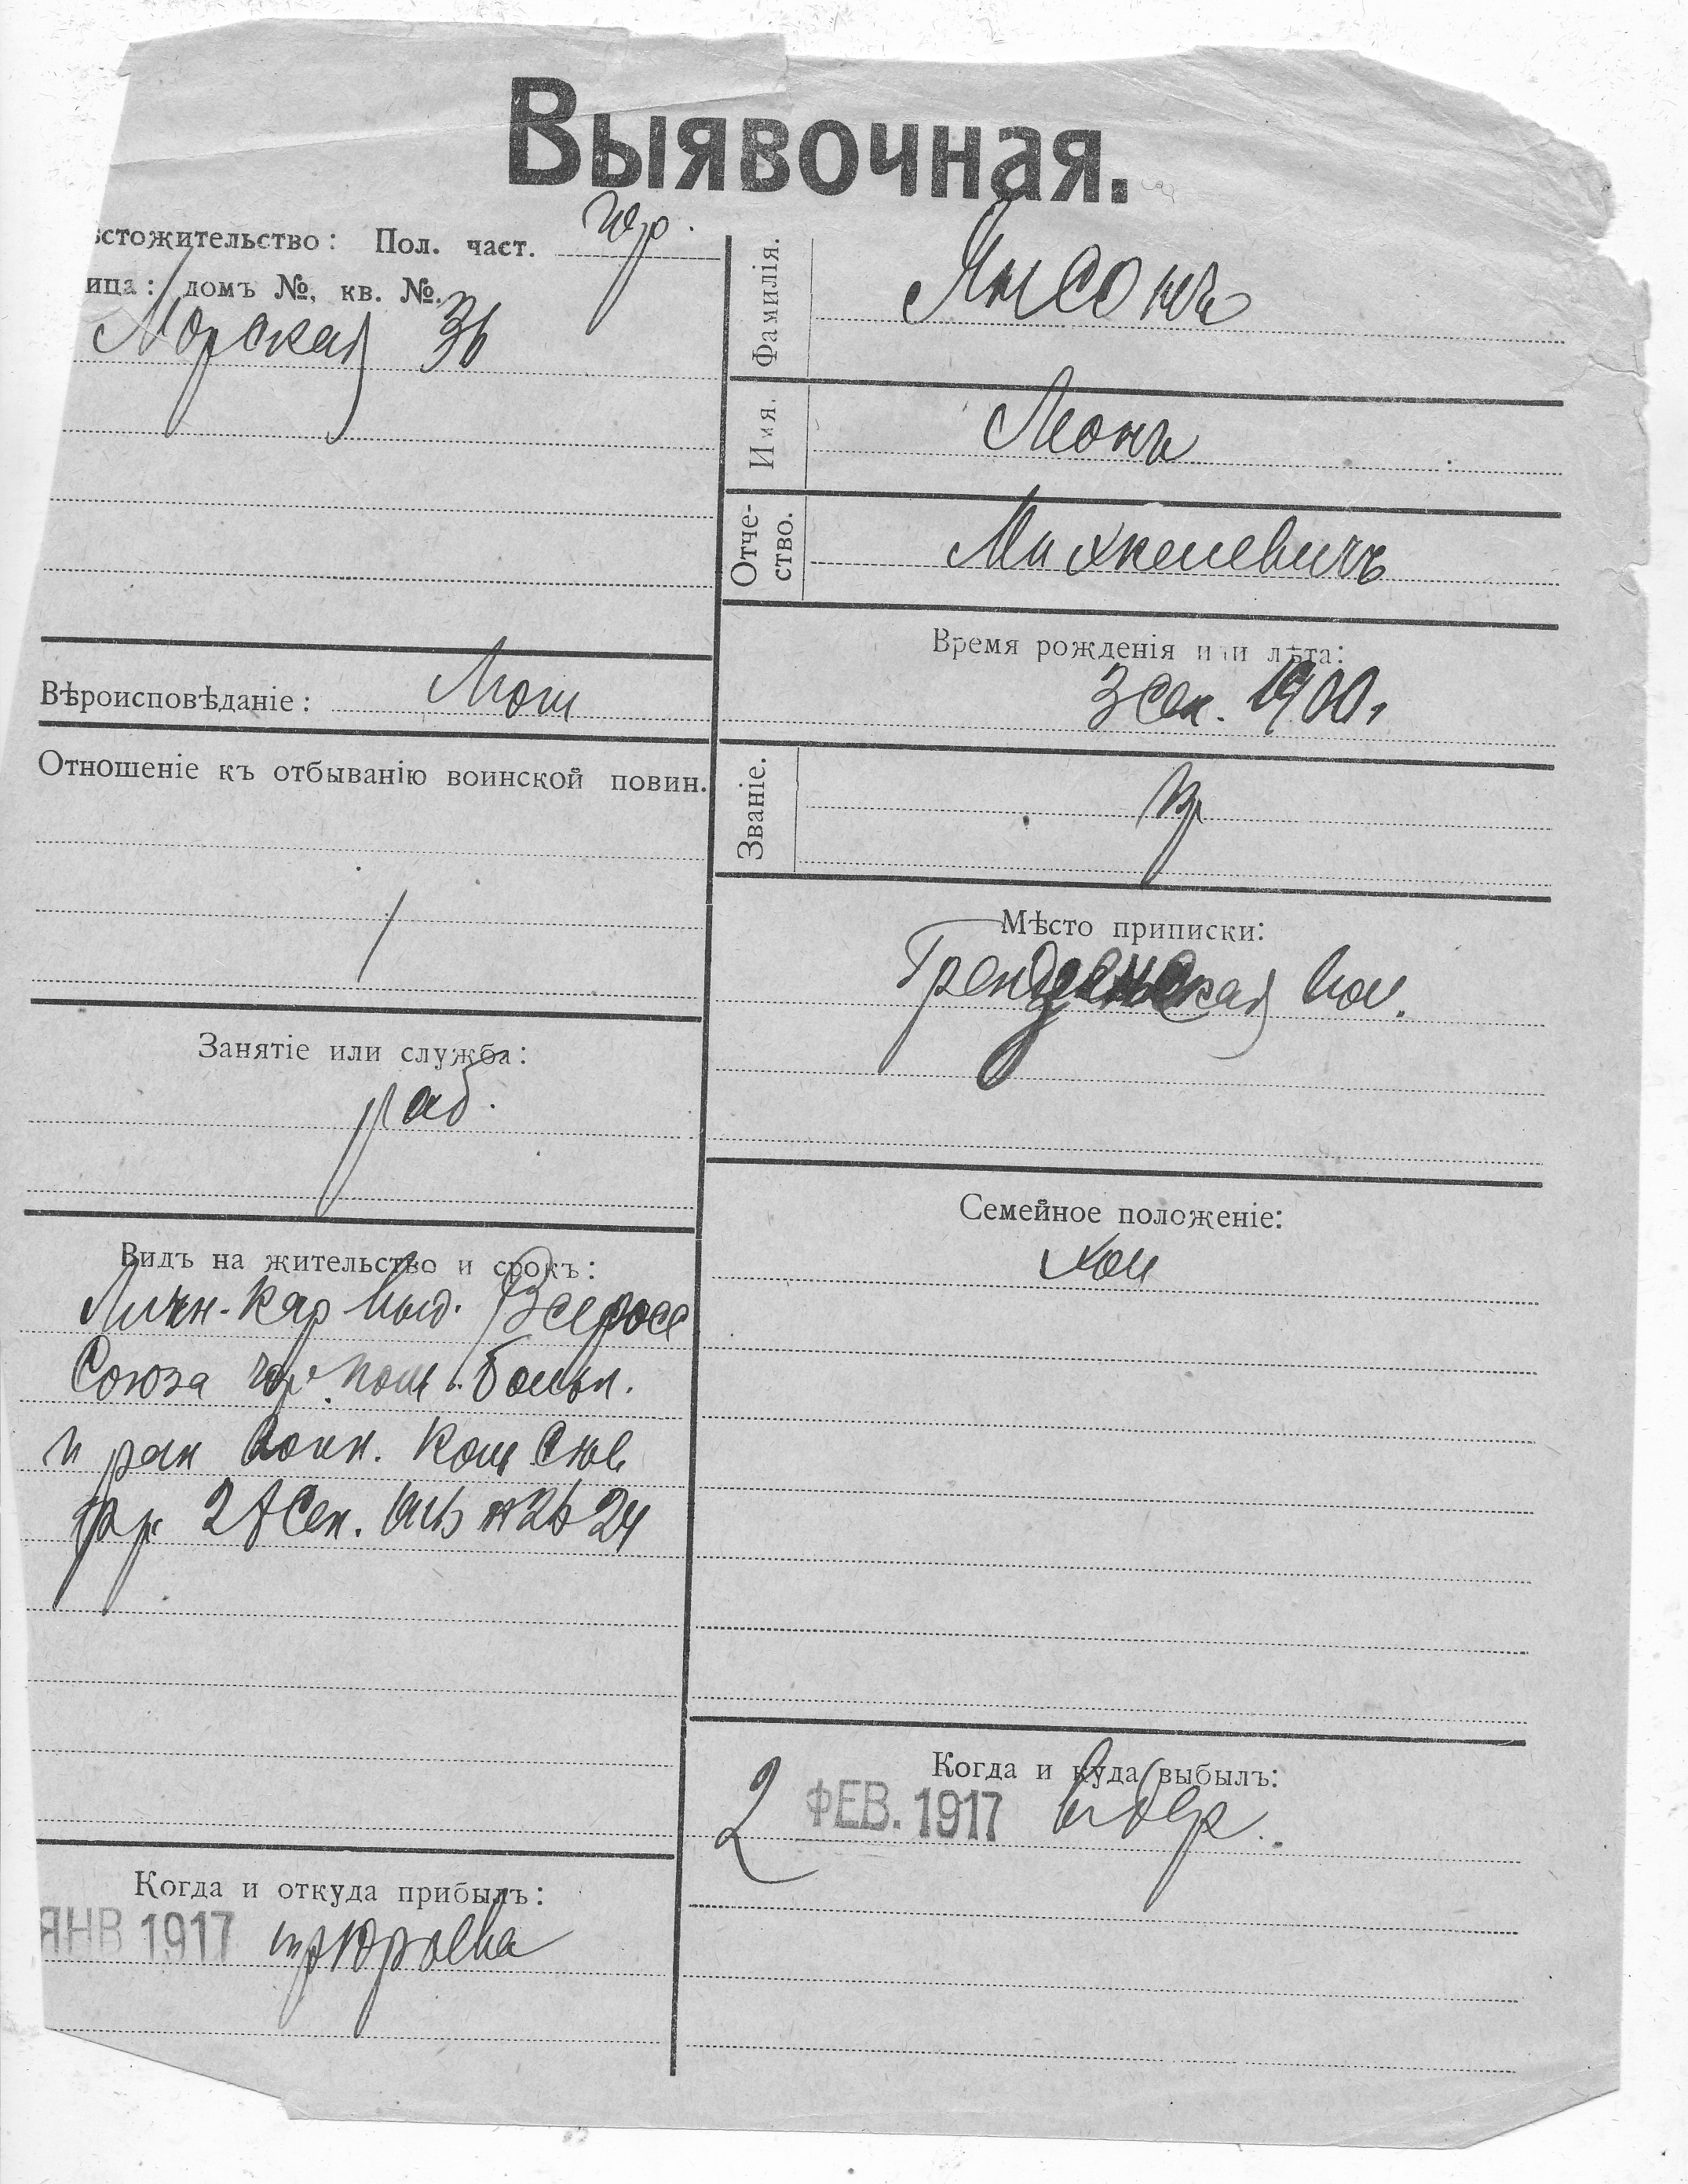 Выявочная.
ѣстожительство: Пол. част.
ица: домъ №, кв. №.
Морская 36
Вѣроисповѣданіе: Лют
Отношеніе къ отбыванію воинской повин.
/
Занятіе или служба:
раб.
Видъ на жительство и срокъ:
Личн. кар выд. Всерос
Союза гор пом. больн.
и ран воин. Ком
27 Сен. № 2624
Когда и откуда прибылъ:
ЯНВ 1917 Юрьева
Фамилія.
Янсонъ
Имя.
Леонъ
Отче-
ство.
Михкелевичъ
Время рожденія или лѣта:
3 Сен. 1900 г.
Званіе.
кр
Мѣсто приписки:
Гренденская вол.
Семейное положеніе:
хол
Когда и куда выбылъ:
2 ФЕВ. 1917